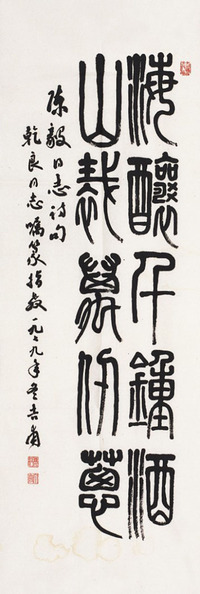 海釀千鍾酒
山栽萬仞蔥
陳毅同志詩句
乾良同志囑篆指教一九七九年冬吉甫